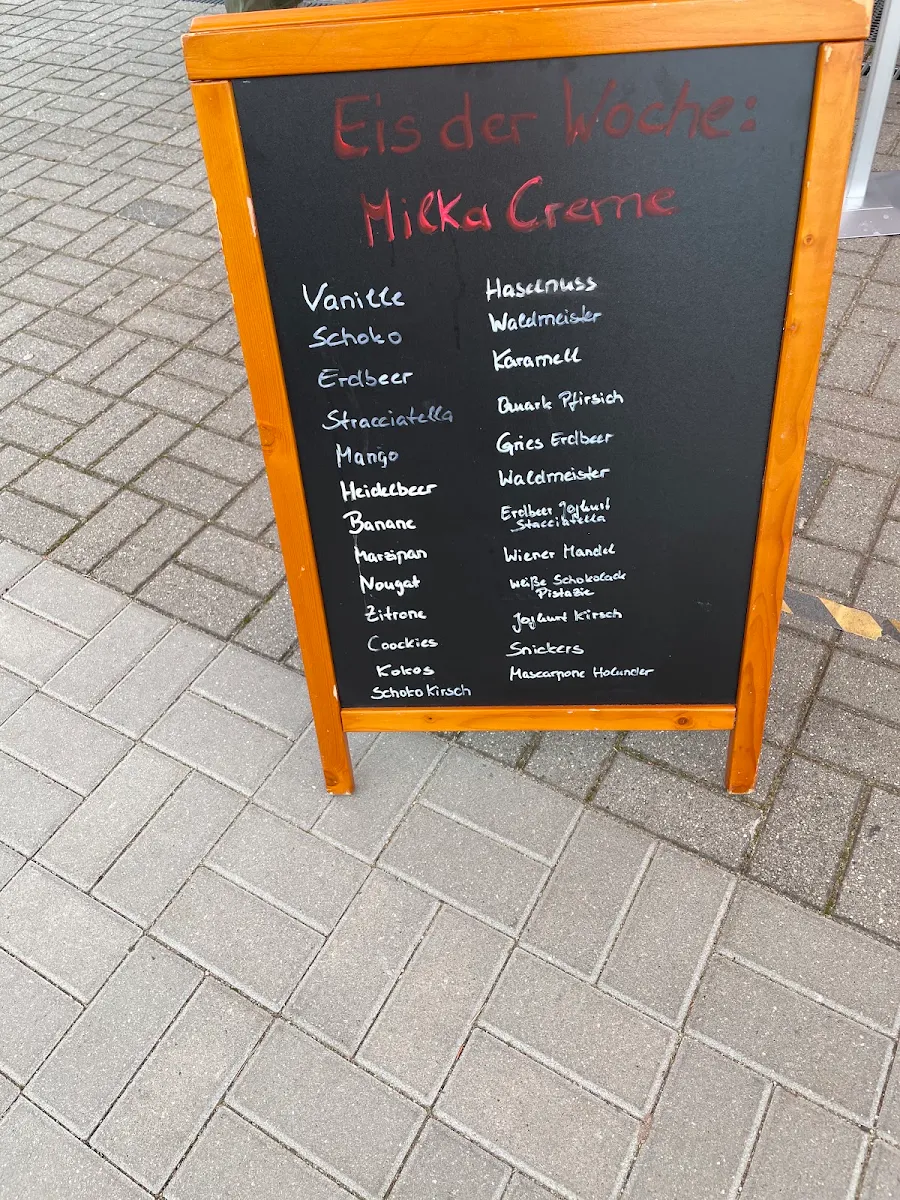 Eis der Woche:
Milka Creme
Vanille
Schoko
Erdbeer
Stracciatella
Mango
Heidelbeer
Banane
Marzipan
Nougat
Zitrone
Coockies
Kokos
Schoko Kirsch
Haselnuss
Waldmeister
Karamell
Quark Pfirsich
Gries Erdbeer
Waldmeister
Erdbeer Joghurt
Stacciatella
Wiener Mandel
weiße Schokolade
Pistazie
Joghurt Kirsch
Snickers
Mascarpone Holunder